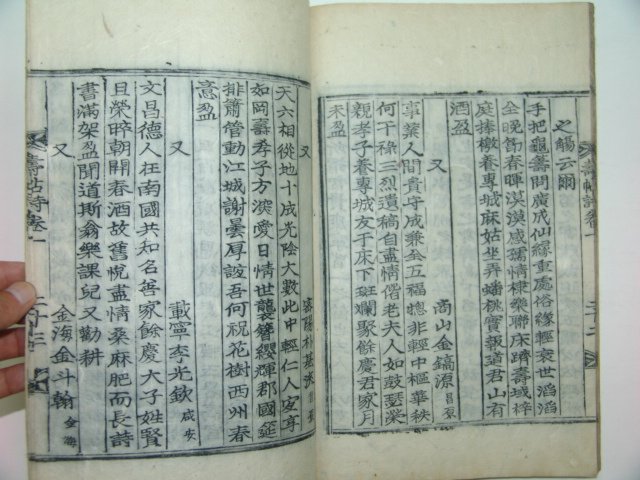 之觴云爾
手把龜壽問廣成仙緣重處俗緣輕哀世滔滔
全晚節春暉漠漠感孺情棣樂聯床躋壽域梓
庭捧檄養專城麻姑坐弄蟠桃實報道君山有
酒盈
又
尙山金鎬源
事業人間貴守成兼全五福總非輕中樞華秩
何干祿三烈遺稿自盡情偕老夫人如鼓瑟榮
親孝子養專城友于床下斑斕聚餘慶君家月
未盈
壽帖詩卷一
二十二
又
密陽朴基
天六相從地十成光陰大數此中輕仁人安享
如岡壽季子方深愛日情世襲簪纓輝郡國筵
排簫管動江城謝曇厚誼吾何祝花樹西州春
意盈
又
載寧李光欽 咸安
文昌德人在南國共知名善家餘慶大子姓賢
且榮晬朝開春酒故舊悅盡情桑麻肥而長詩
書滿架盈聞道斯翁樂課兒又勸耕
又
金海金斗翰 金海
壽帖詩卷一
二十三